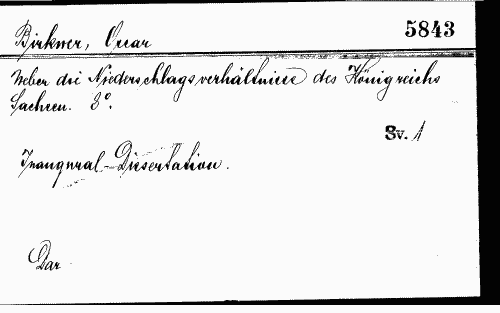 Birkner, Oscar
5843
Ueber die Niederschlagsverhältnisse des Königreichs
Sachsen. 8°.
Sv. 1
Inaugural-Dissertation.
Dar